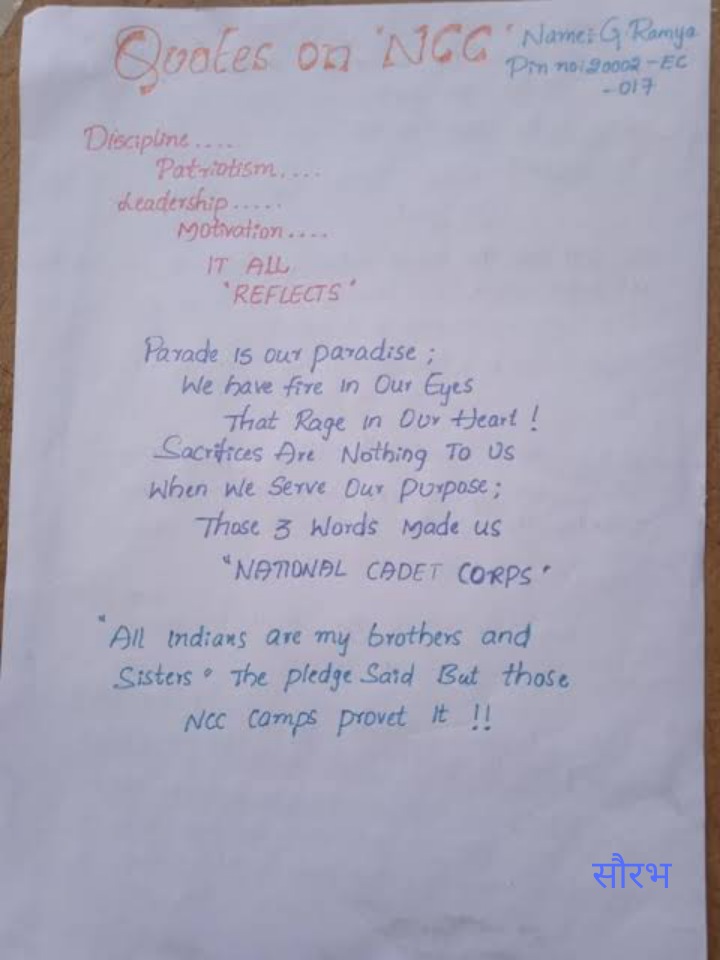 Quotes on 'NCC'
Name: G. Ramya
Pin no: 20002-EC
-017
Discipline....
Patriotism....
Leadership.....
Motivation....
IT ALL
"REFLECTS"
Parade is our paradise;
We have fire in Our Eyes
That Rage in Our Heart!
Sacrifices Are Nothing To Us
When We Serve Our Purpose;
Those 3 Words Made us
"NATIONAL CADET CORPS"
"All Indians are my brothers and
Sisters" The pledge Said But those
NCC camps provet It !!
सौरभ